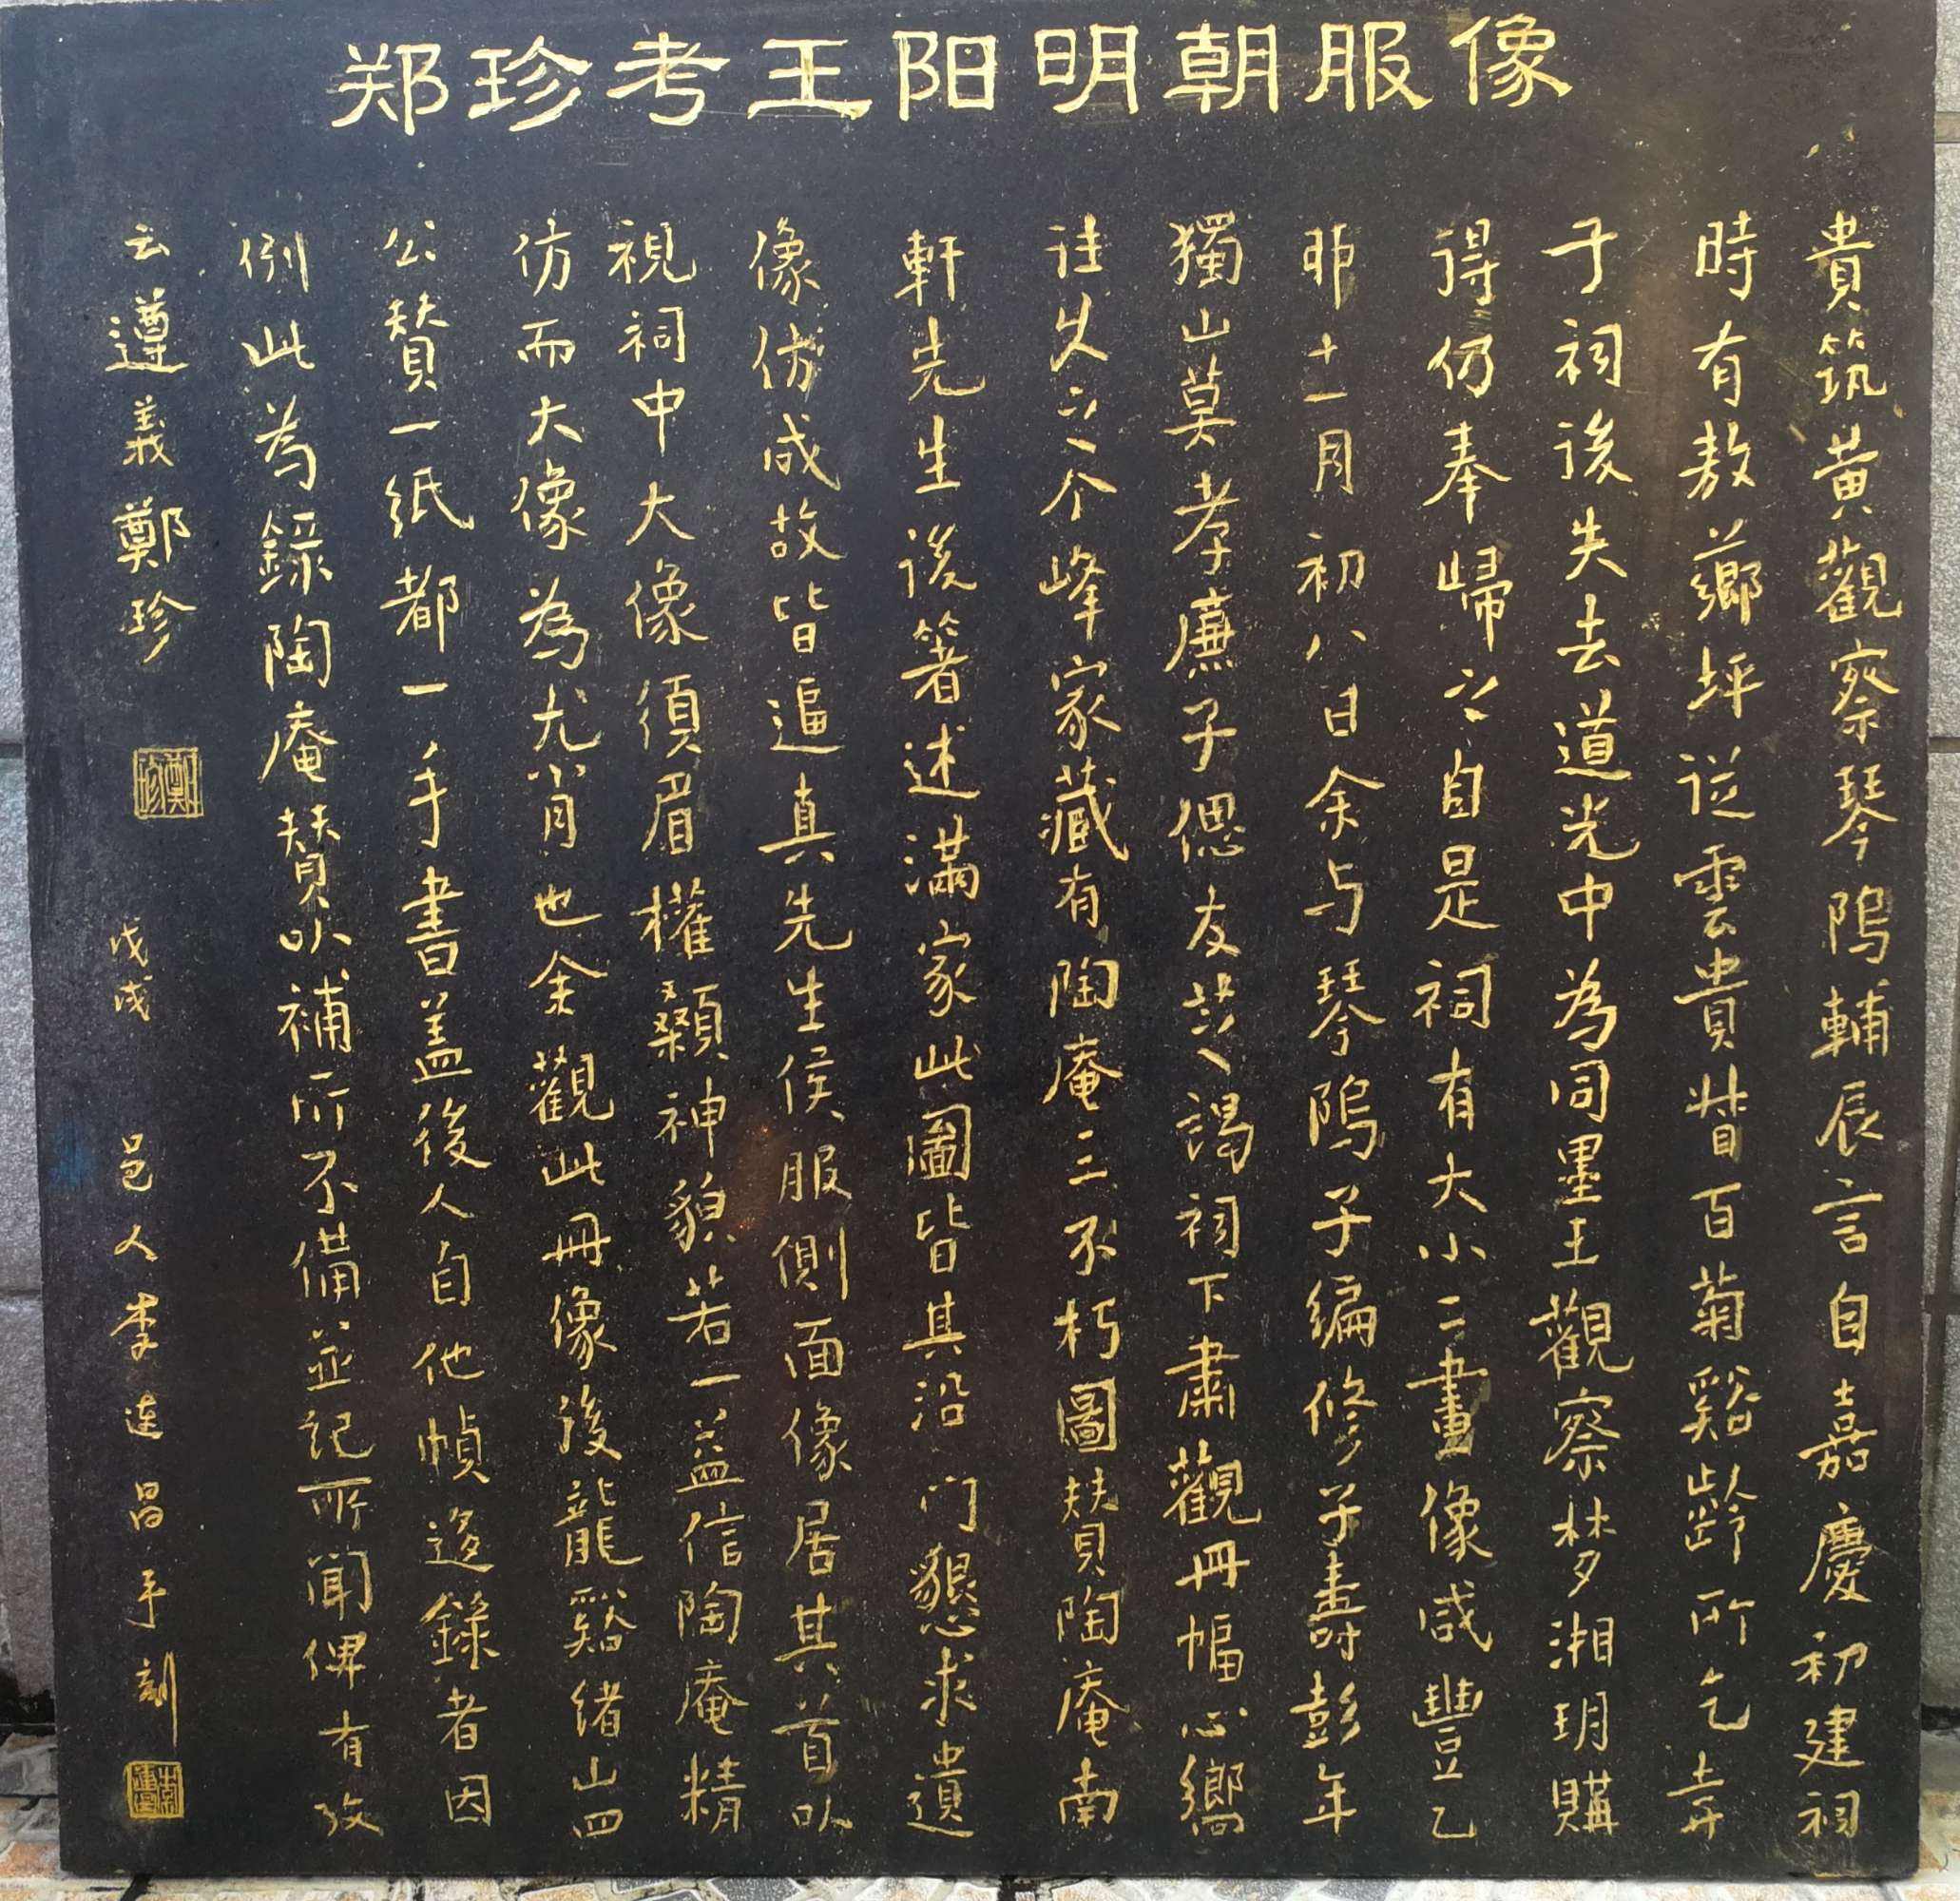 郑珍考王阳明朝服像
貴筑黃觀察琴隖輔辰言自嘉慶初建祠
時有敖薌坪從雲貴督百菊谿齡所乞弆
于祠後失去道光中為同墨王觀察梦湘玥購
得仍奉歸之自是祠有大小二畫像咸豐乙
卯十一月初八日余与琴隖子編修子壽彭年
獨山莫孝廉子偲友芝謁祠下肅觀冊幅心嚮
往久之个峰家藏有陶庵三不朽圖贊陶庵南
軒先生後箸述滿家此圖皆其沿门懇求遺
像仿成故皆逼真先生侯服側面像居其首以
視祠中大像須眉權顙神貌若一益信陶庵精
仿而大像為尤肖也余觀此冊像後龍谿緒山四
公贊一紙都一手書盖後人自他幀迻錄者因
例此為錄陶庵贊以補所不備並記所聞俾有攷
云遵義鄭珍
鄭珍
戊戌 邑人李連昌手刻